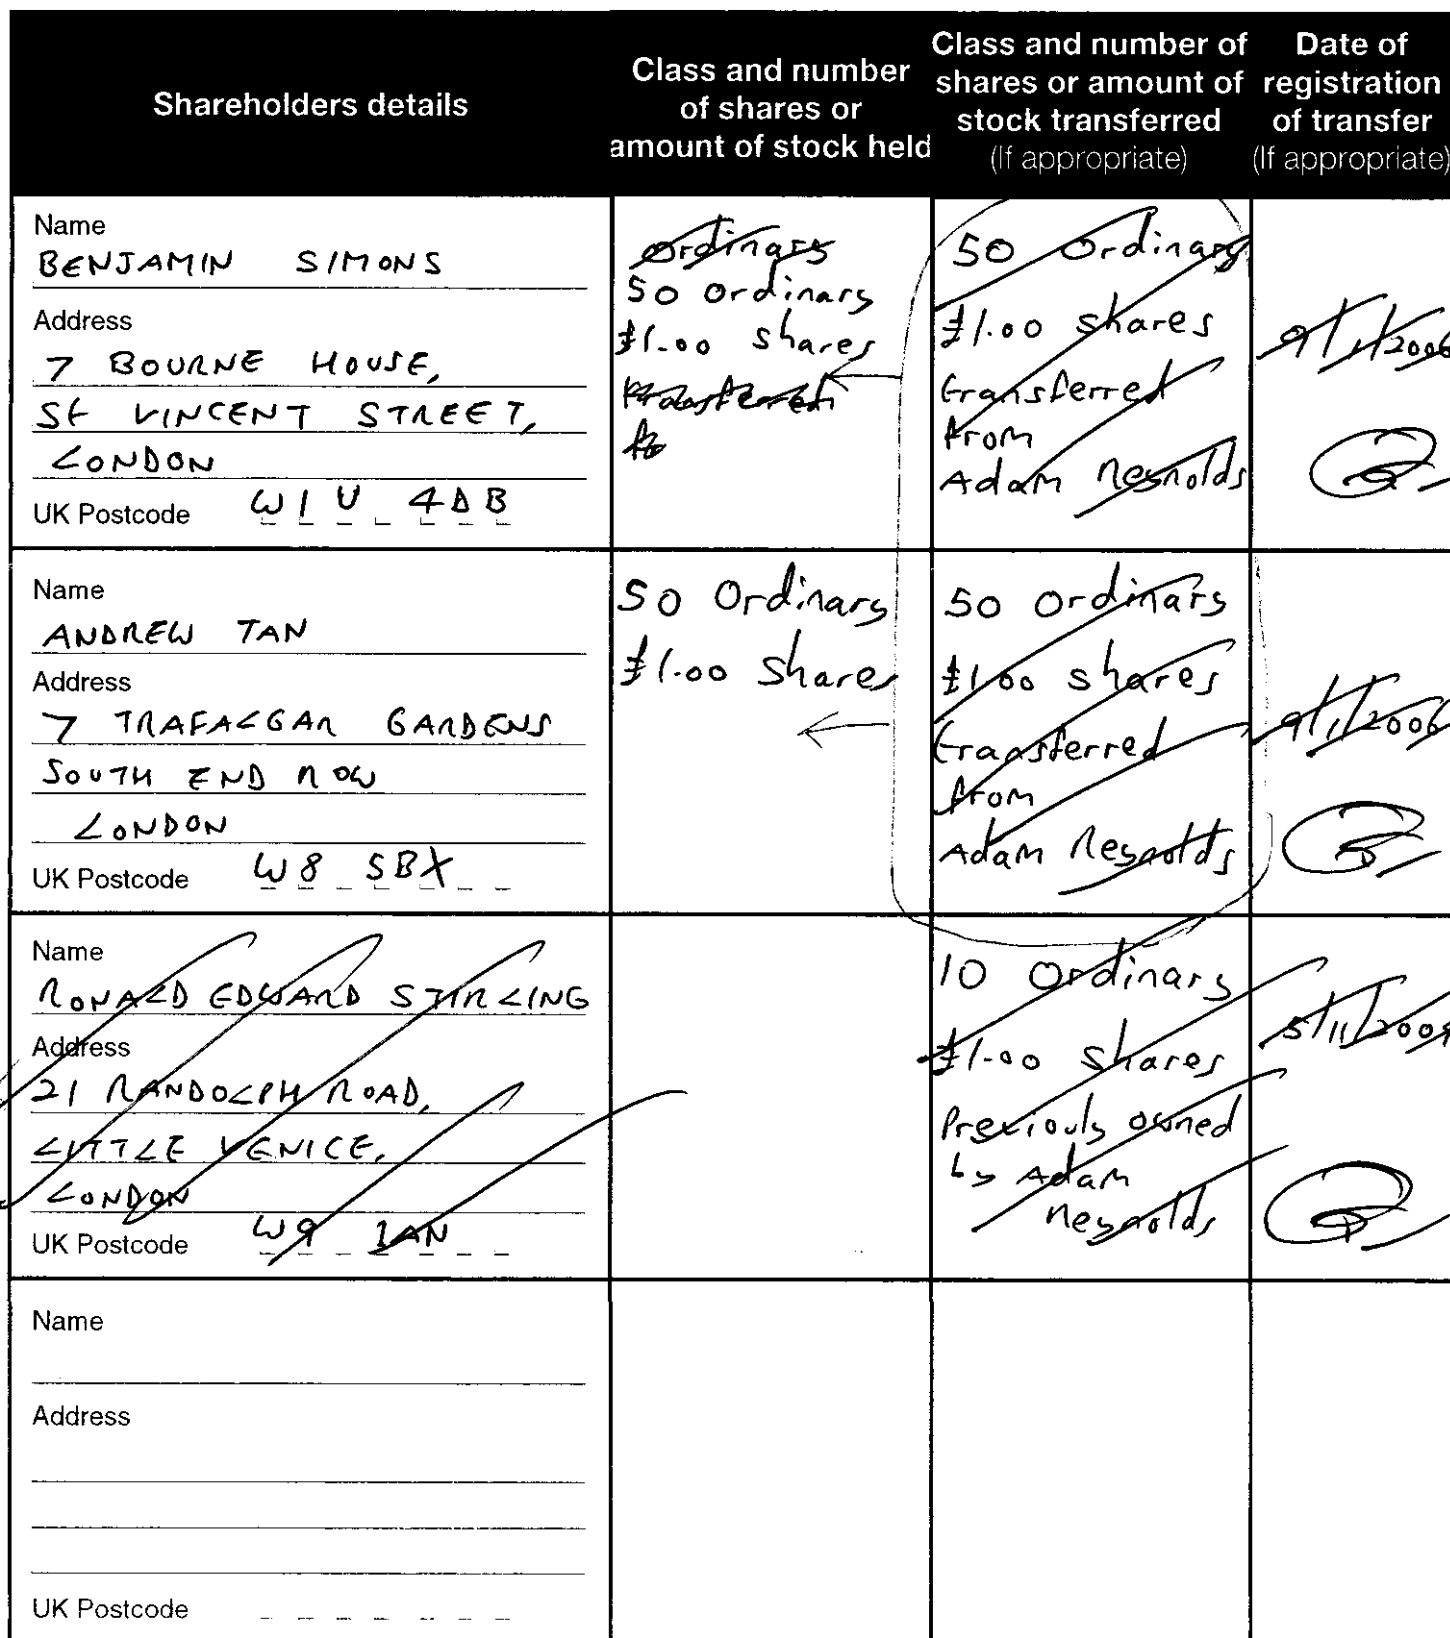 Shareholders details
Class and number
of shares or
amount of stock held
Class and number of
shares or amount of
stock transferred
(If appropriate)
Date of
registration
of transfer
(If appropriate)
Name
BENJAMIN SIMONS
Address
7 BOURNE HOUSE,
St VINCENT STREET,
LONDON
UK Postcode W1U 4DB
Ordinary
50 Ordinary
£1.00 shares
transferred
to
50 Ordinary
£1.00 shares
transferred
from
Adam Reynolds
9/1/2006
Name
ANDREW TAN
Address
7 TRAFALGAR GARDENS
SOUTH END ROW
LONDON
UK Postcode W8 5BX
50 Ordinary
£1.00 shares
50 Ordinary
£1.00 shares
transferred
from
Adam Reynolds
9/1/2006
Name
RONALD EDWARD STIRLING
Address
21 RANDOLPH ROAD,
LITTLE VENICE,
LONDON
UK Postcode W9 1AN
10 Ordinary
£1.00 shares
Previously owned
by Adam
Reynolds
Name
Address
UK Postcode